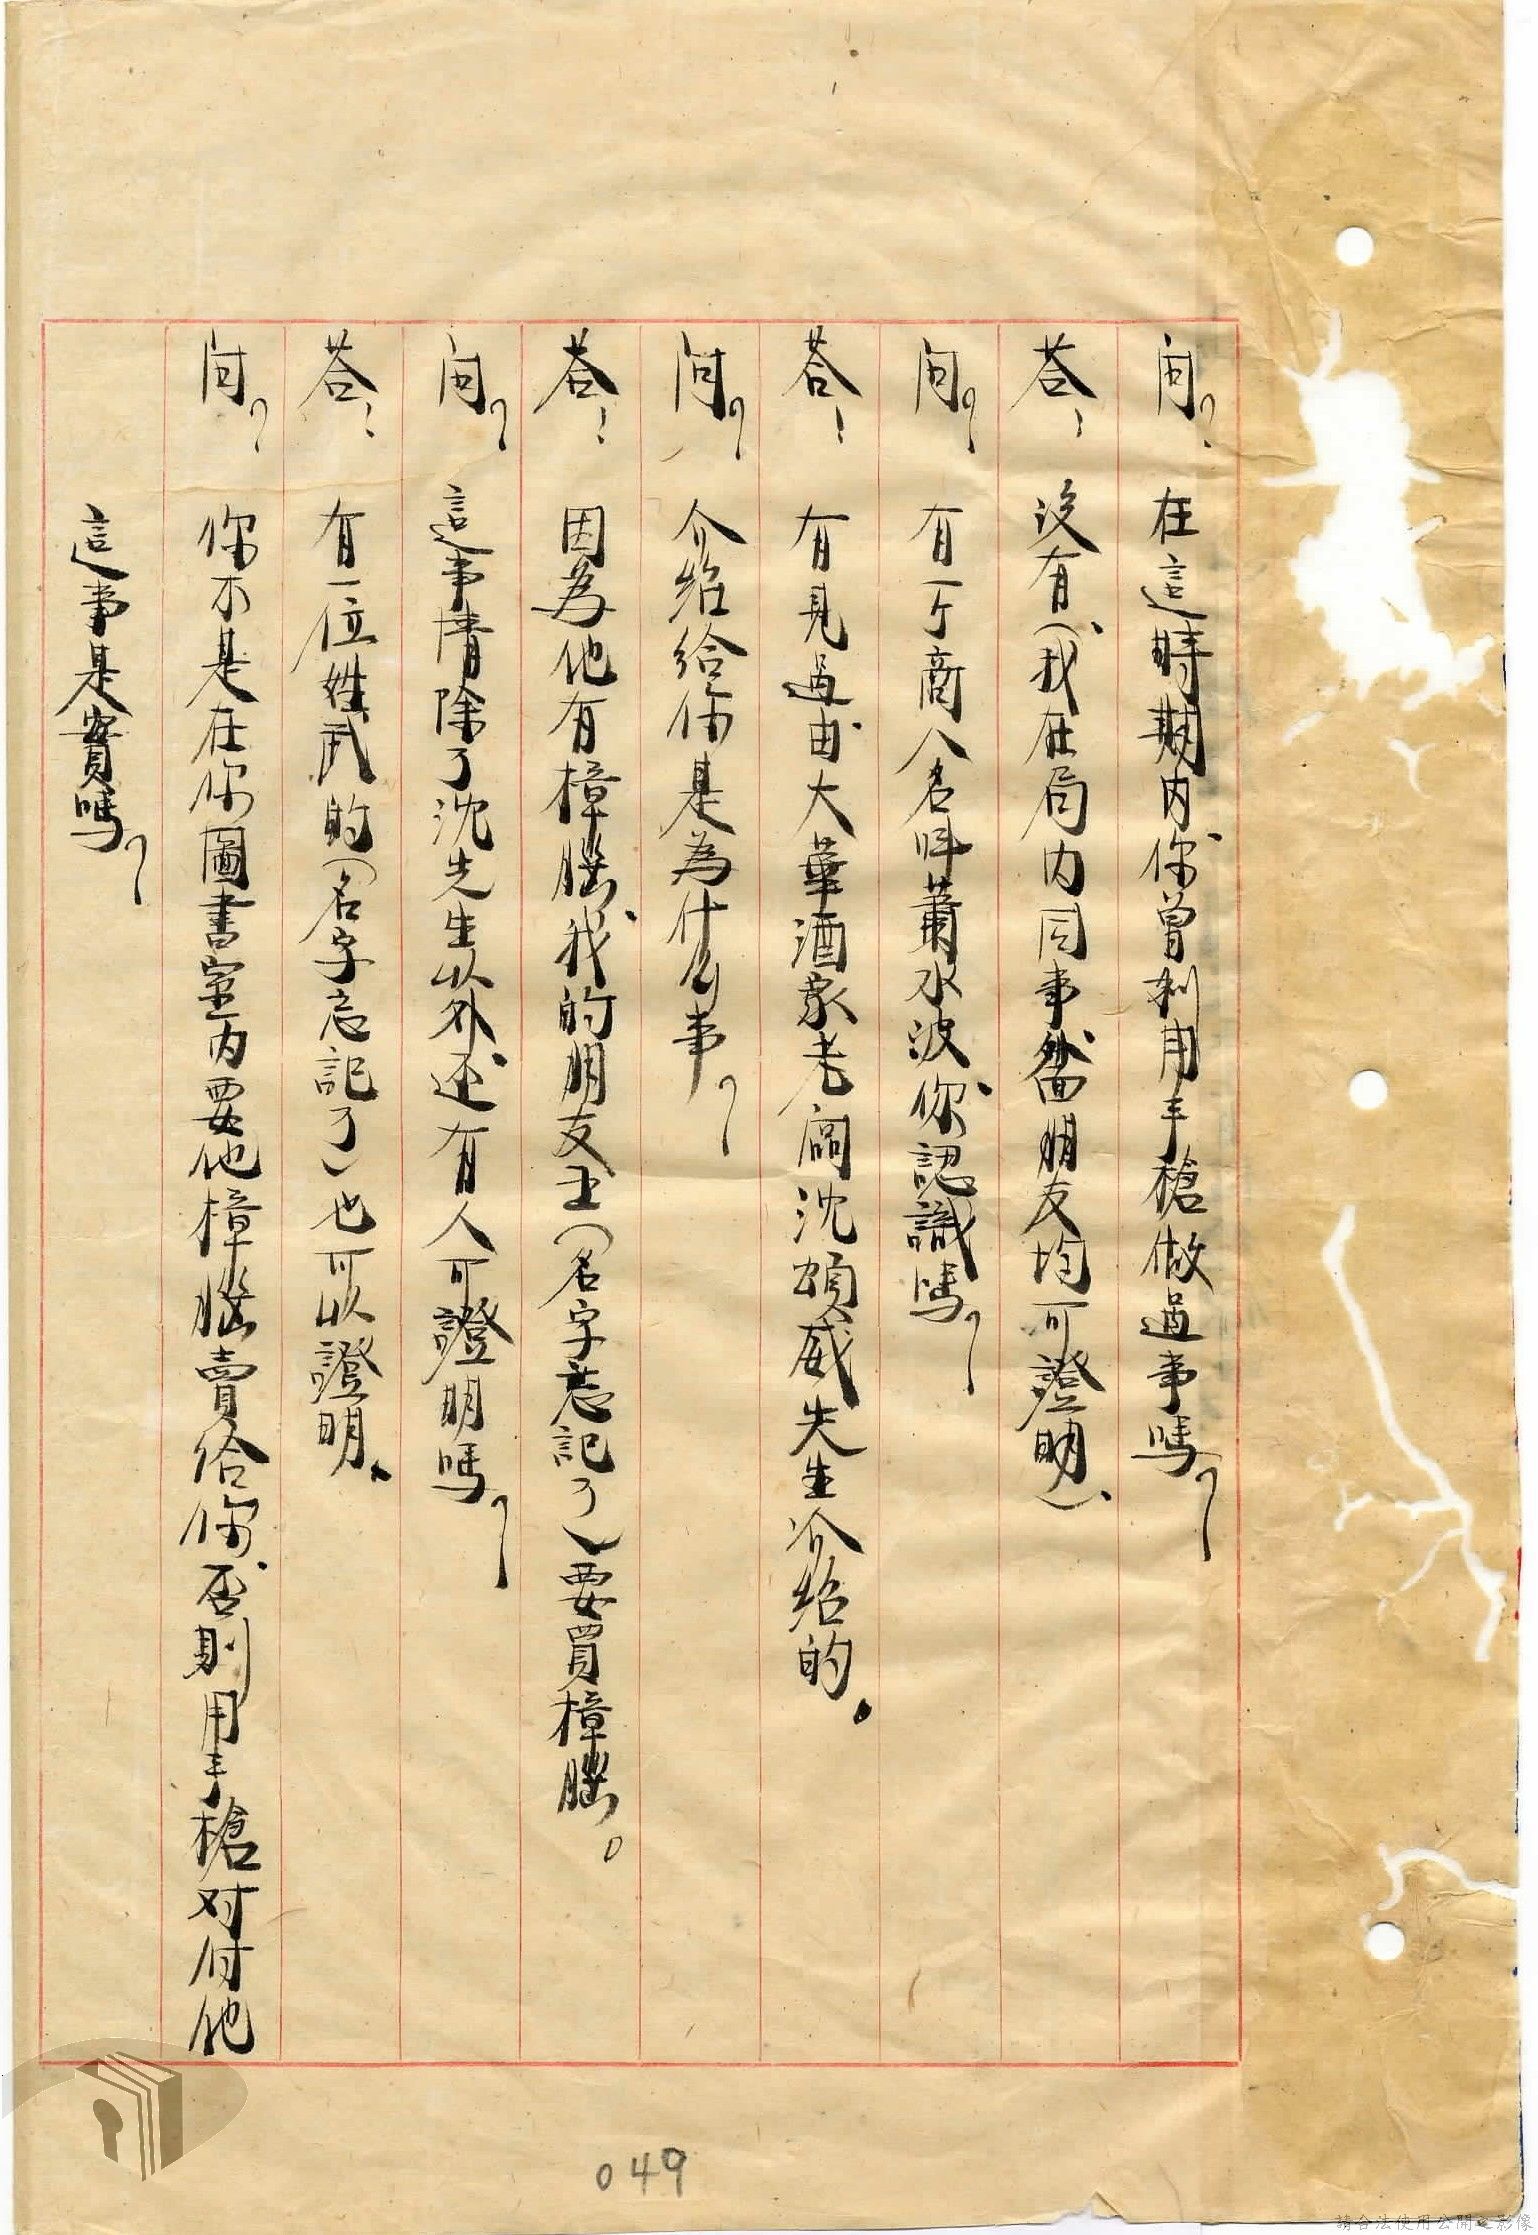 问？在這時期内你曾利用手槍做過事嗎？
荅：沒有（我在局内同事當面朋友均可證明）
问？有一个商人名叫蕭水波你認識嗎？
荅：有見過由大華酒家老闆沈頌威先生介紹的。
问？介紹給你是為什么事？
荅：因為他有樟腦我的朋友王（名字忘記了）要買樟腦。
问？這事情除了沈先生以外还有人可證明嗎？
荅：有一位姓武的（名字忘記了）也可以證明。
问？你不是在你圖書室内要他樟腦賣給你否則用手槍对付他
這事是實嗎？
049
請合法使用公開之影像